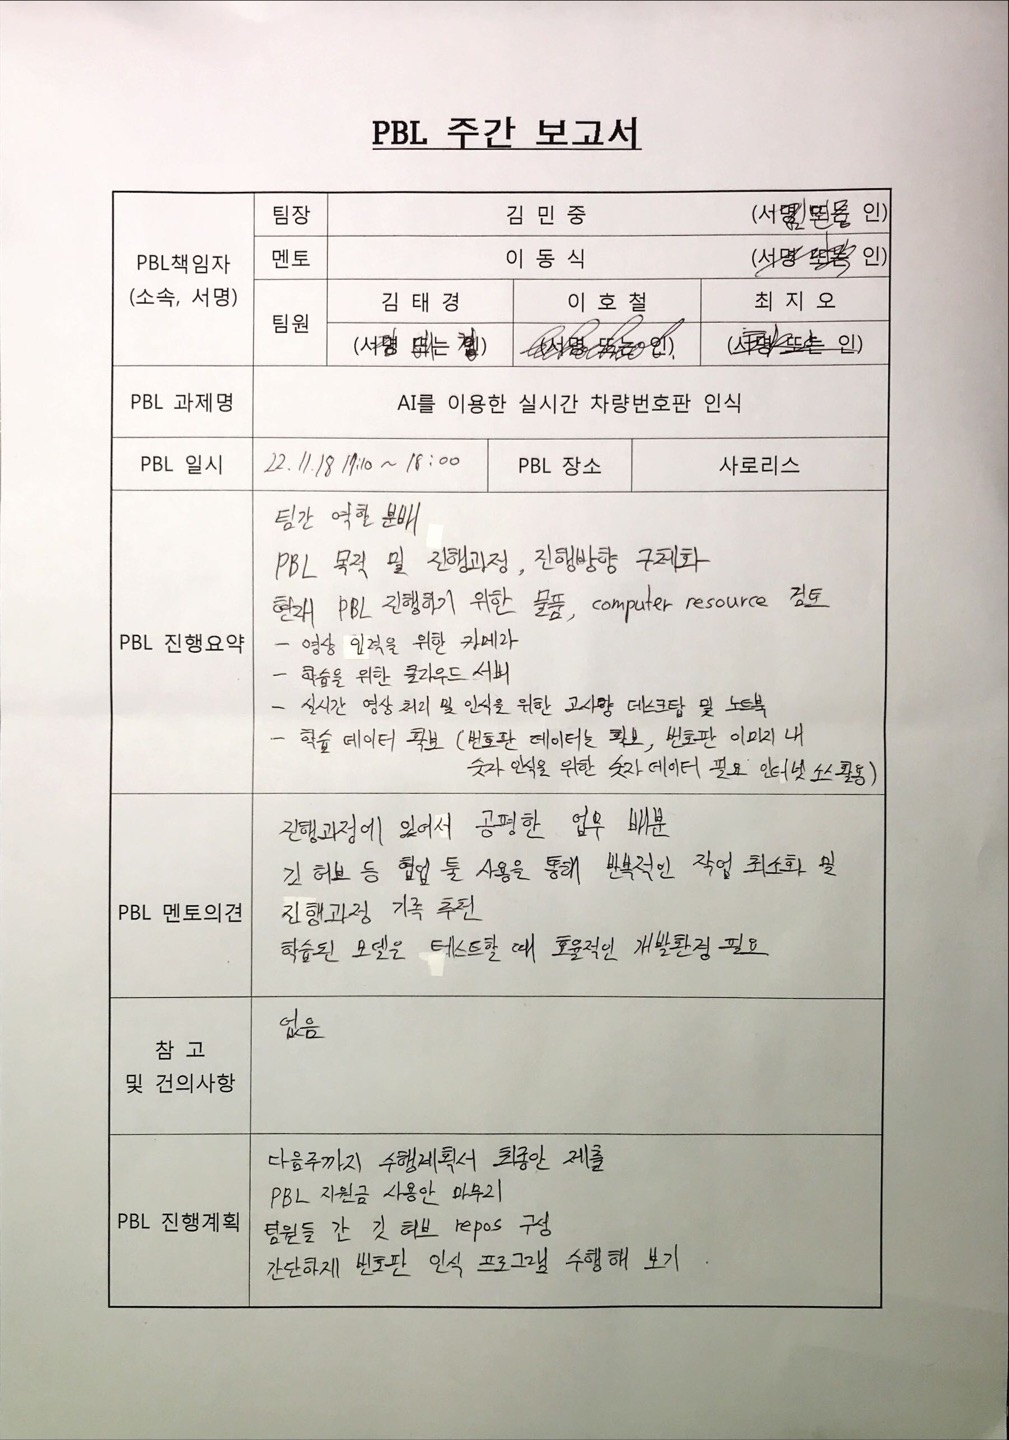 PBL 주간 보고서
PBL책임자
(소속, 서명)
팀장
김 민 중
(서명 또는 인)
멘토
이 동 식
(서명 또는 인)
팀원
김 태 경
이 호 철
최 지 오
(서명 또는 인)
(서명 또는 인)
(서명 또는 인)
PBL 과제명
AI를 이용한 실시간 차량번호판 인식
PBL 일시
22.11.18 17:10 ~ 18:00
PBL 장소
사로리스
PBL 진행요약
팀간 역할 분배
PBL 목적 및 진행과정, 진행방향 구체화
현재 PBL 진행하기 위한 물품, computer resource 검토
- 영상 입력을 위한 카메라
- 학습을 위한 클라우드 서버
- 실시간 영상 처리 및 인식을 위한 고사양 데스크탑 및 노트북
- 학습 데이터 확보 (번호판 데이터는 확보, 번호판 이미지 내
숫자 인식을 위한 숫자 데이터 필요 인터넷 소스 활용)
PBL 멘토의견
진행과정에 있어서 공평한 업무 배분
깃 허브 등 협업 툴 사용을 통해 반복적인 작업 최소화 및
진행과정 기록 추천
학습된 모델은 테스트할 때 효율적인 개발환경 필요
참 고
및 건의사항
없음
PBL 진행계획
다음주까지 수행계획서 최종안 제출
PBL 지원금 사용안 마무리
팀원들 간 깃 허브 repos 구성
간단하게 번호판 인식 프로그램 수행해 보기.